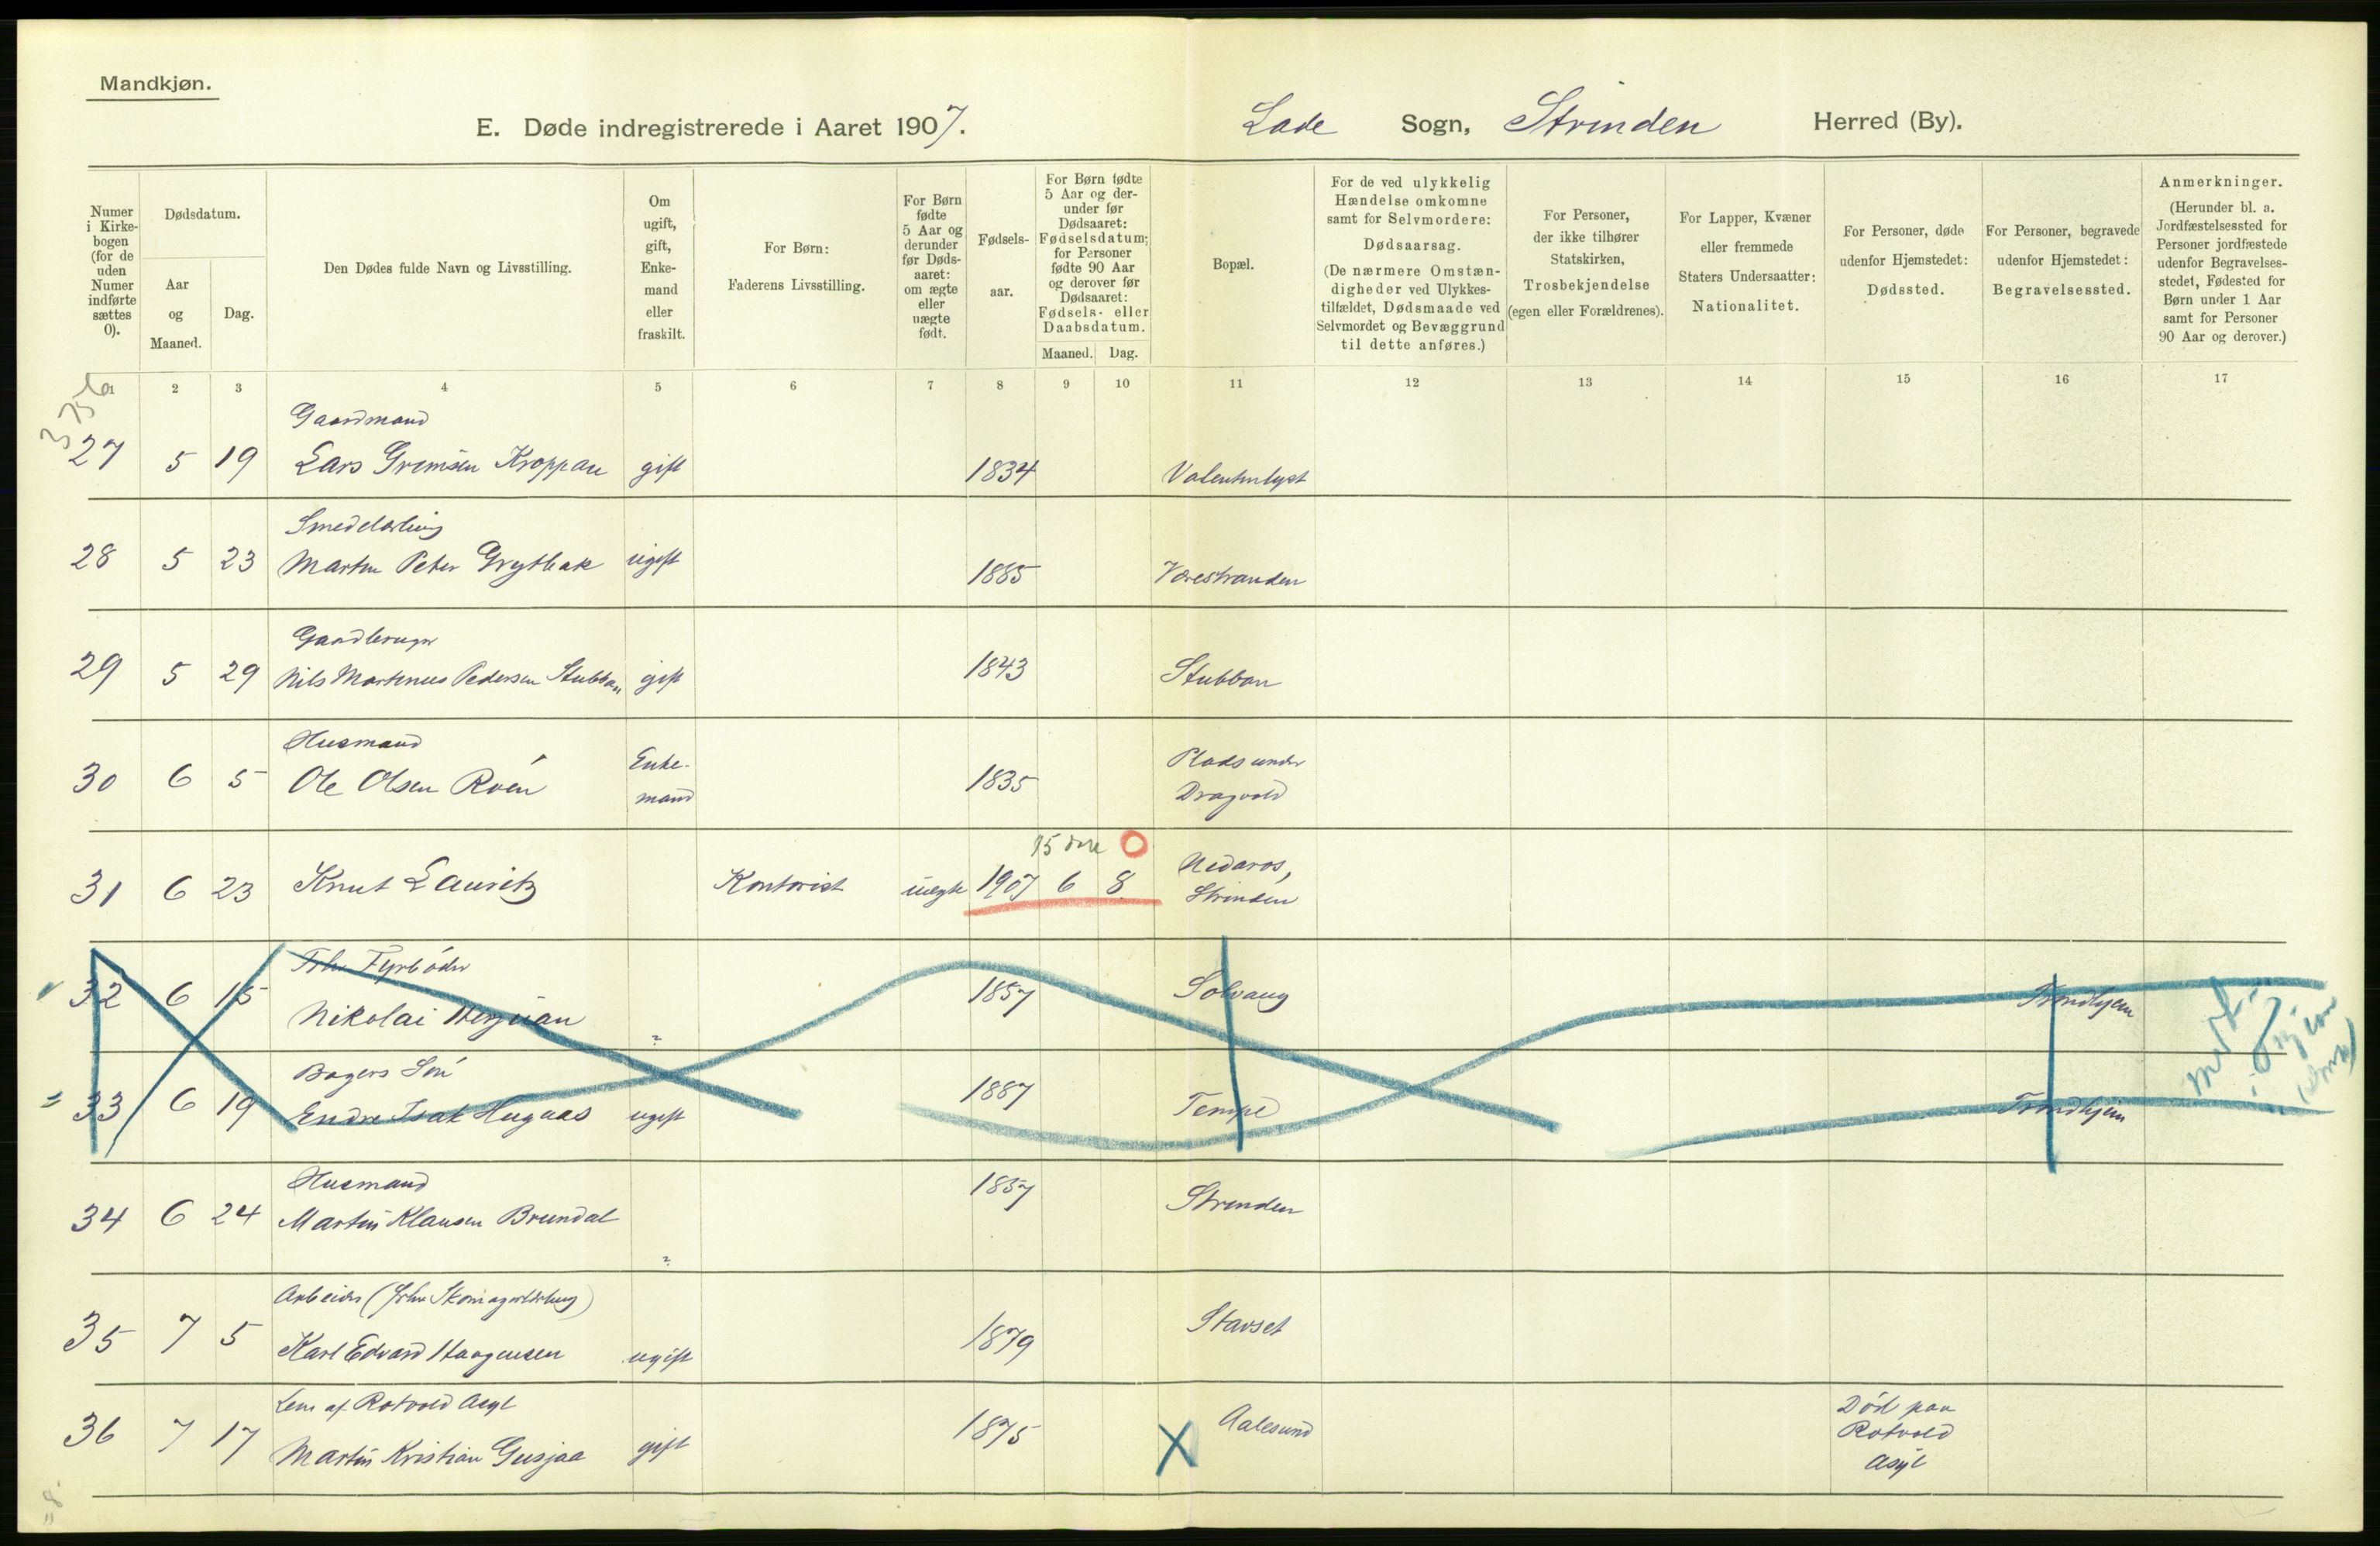 Mandkjøn.
E. Døde indregistrerede i Aaret 1907.
Lade Sogn, Strinden Herred (By).
Numer i Kirkebogen (for de uden Numer indførte sættes 0).
Dødsdatum.
Aar og Maaned.
Dag.
Den Dødes fulde Navn og Livsstilling.
Om ugift, gift, Enkemand eller fraskilt.
For Børn: Faderens Livsstilling.
For Børn fødte 5 Aar og derunder før Dødsaaret: om ægte eller uægte født.
Fødselsaar.
For Børn fødte 5 Aar og derunder før Dødsaaret: Fødselsdatum; for Personer fødte 90 Aar og derover før Dødsaaret: Fødsels- eller Daabsdatum.
Maaned. Dag.
Bopæl.
For de ved ulykkelig Hændelse omkomne samt for Selvmordere: Dødsaarsag. (De nærmere Omstændigheder ved Ulykkestilfældet, Dødsmaade ved Selvmordet og Bevæggrund til dette anføres.)
For Personer, der ikke tilhører Statskirken, Trosbekjendelse (egen eller Forældrenes).
For Lapper, Kvæner eller fremmede Staters Undersaatter: Nationalitet.
For Personer, døde udenfor Hjemstedet: Dødssted.
For Personer, begravede udenfor Hjemstedet: Begravelsessted.
Anmerkninger. (Herunder bl. a. Jordfæstelsessted for Personer jordfæstede udenfor Begravelsesstedet, Fødested for Børn under 1 Aar samt for Personer 90 Aar og derover.)
1 2 3 4 5 6 7 8 9 10 11 12 13 14 15 16 17
Gaardmand
27 5 19 Lars Gremsen Kroppan gift 1834 Valentinlyst
28 5 23 Martin Peter Grytbak ugift 1885 Være stranden
Gaardbruger
29 5 29 Nils Martinus Pedersen Stubban gift 1843 Stubban
Husmand
30 6 5 Ole Olsen Roén Enkemand 1835 Plads under Dragvold
15 dge
31 6 23 Knut Lauritz Kontorist uægte 1907 6 8 Nidaros, Strinden
Fhv Fyrbøder
32 6 15 Nikolai ? 1857 Solvang Trondhjem
Bagers Søn
33 6 19 Endre Isak Hugaas ugift 1887 Tempe Trondhjem
Husmand
34 6 24 Martin Klausen Brundal ? 1837 Strinden
Arbeider (fhv Skomagerlærling)
35 7 5 Karl Edvard Haagensen ugift 1879 Stavset
Lem af Rotvold Asyl
36 7 17 Martin Kristian Gusjaa gift 1875 X Aalesund Død paa Rotvold Asyl